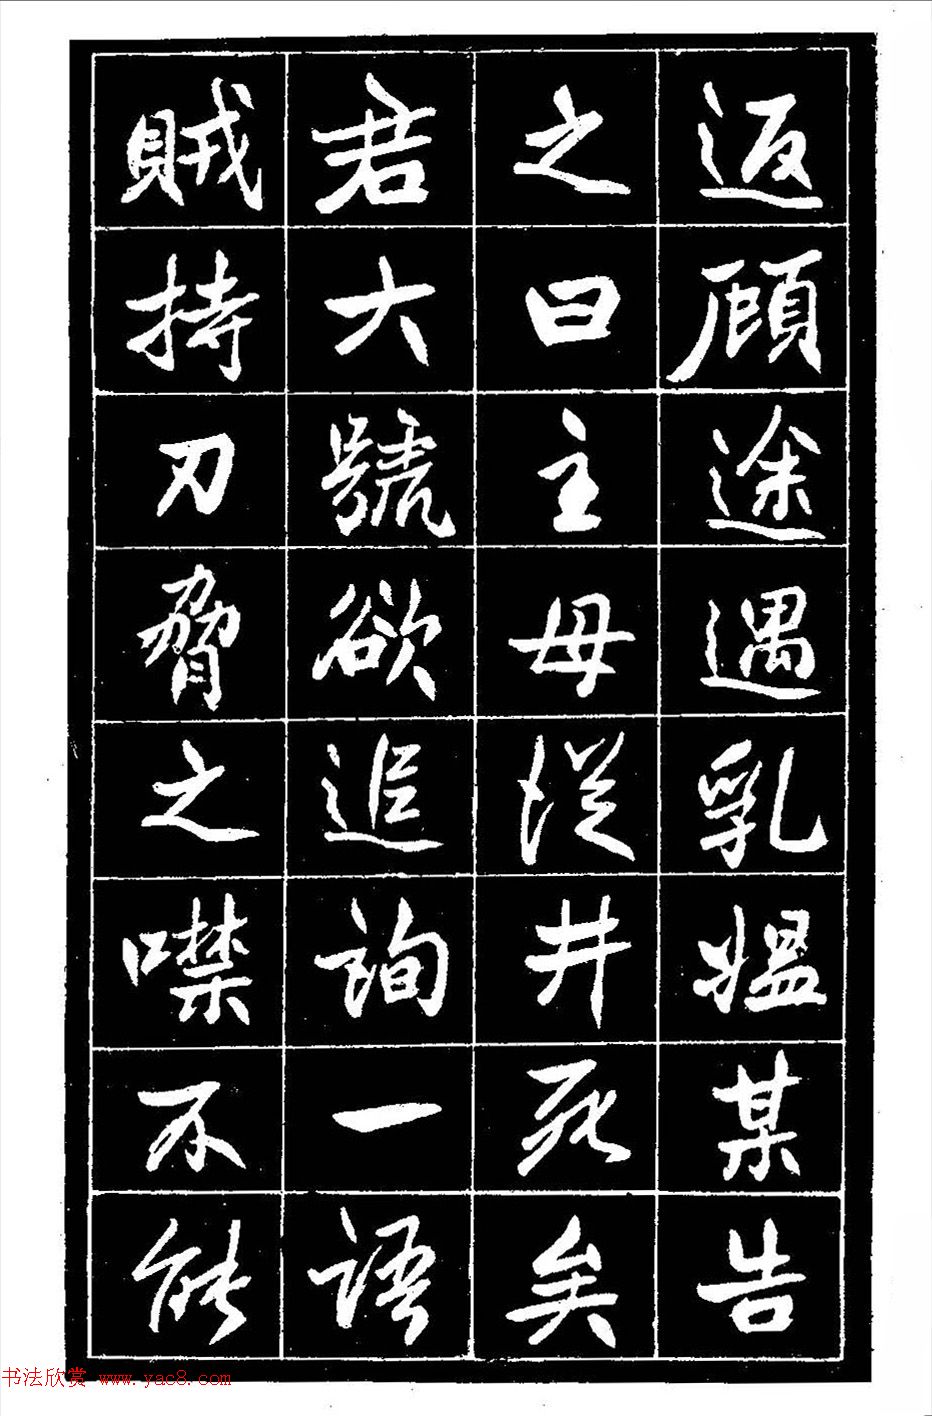 返顾途遇乳媪某告
之曰主母從井死矣
君大號欲追詢一語
賊持刃脅之噤不能
书法欣赏 www.yac8.com